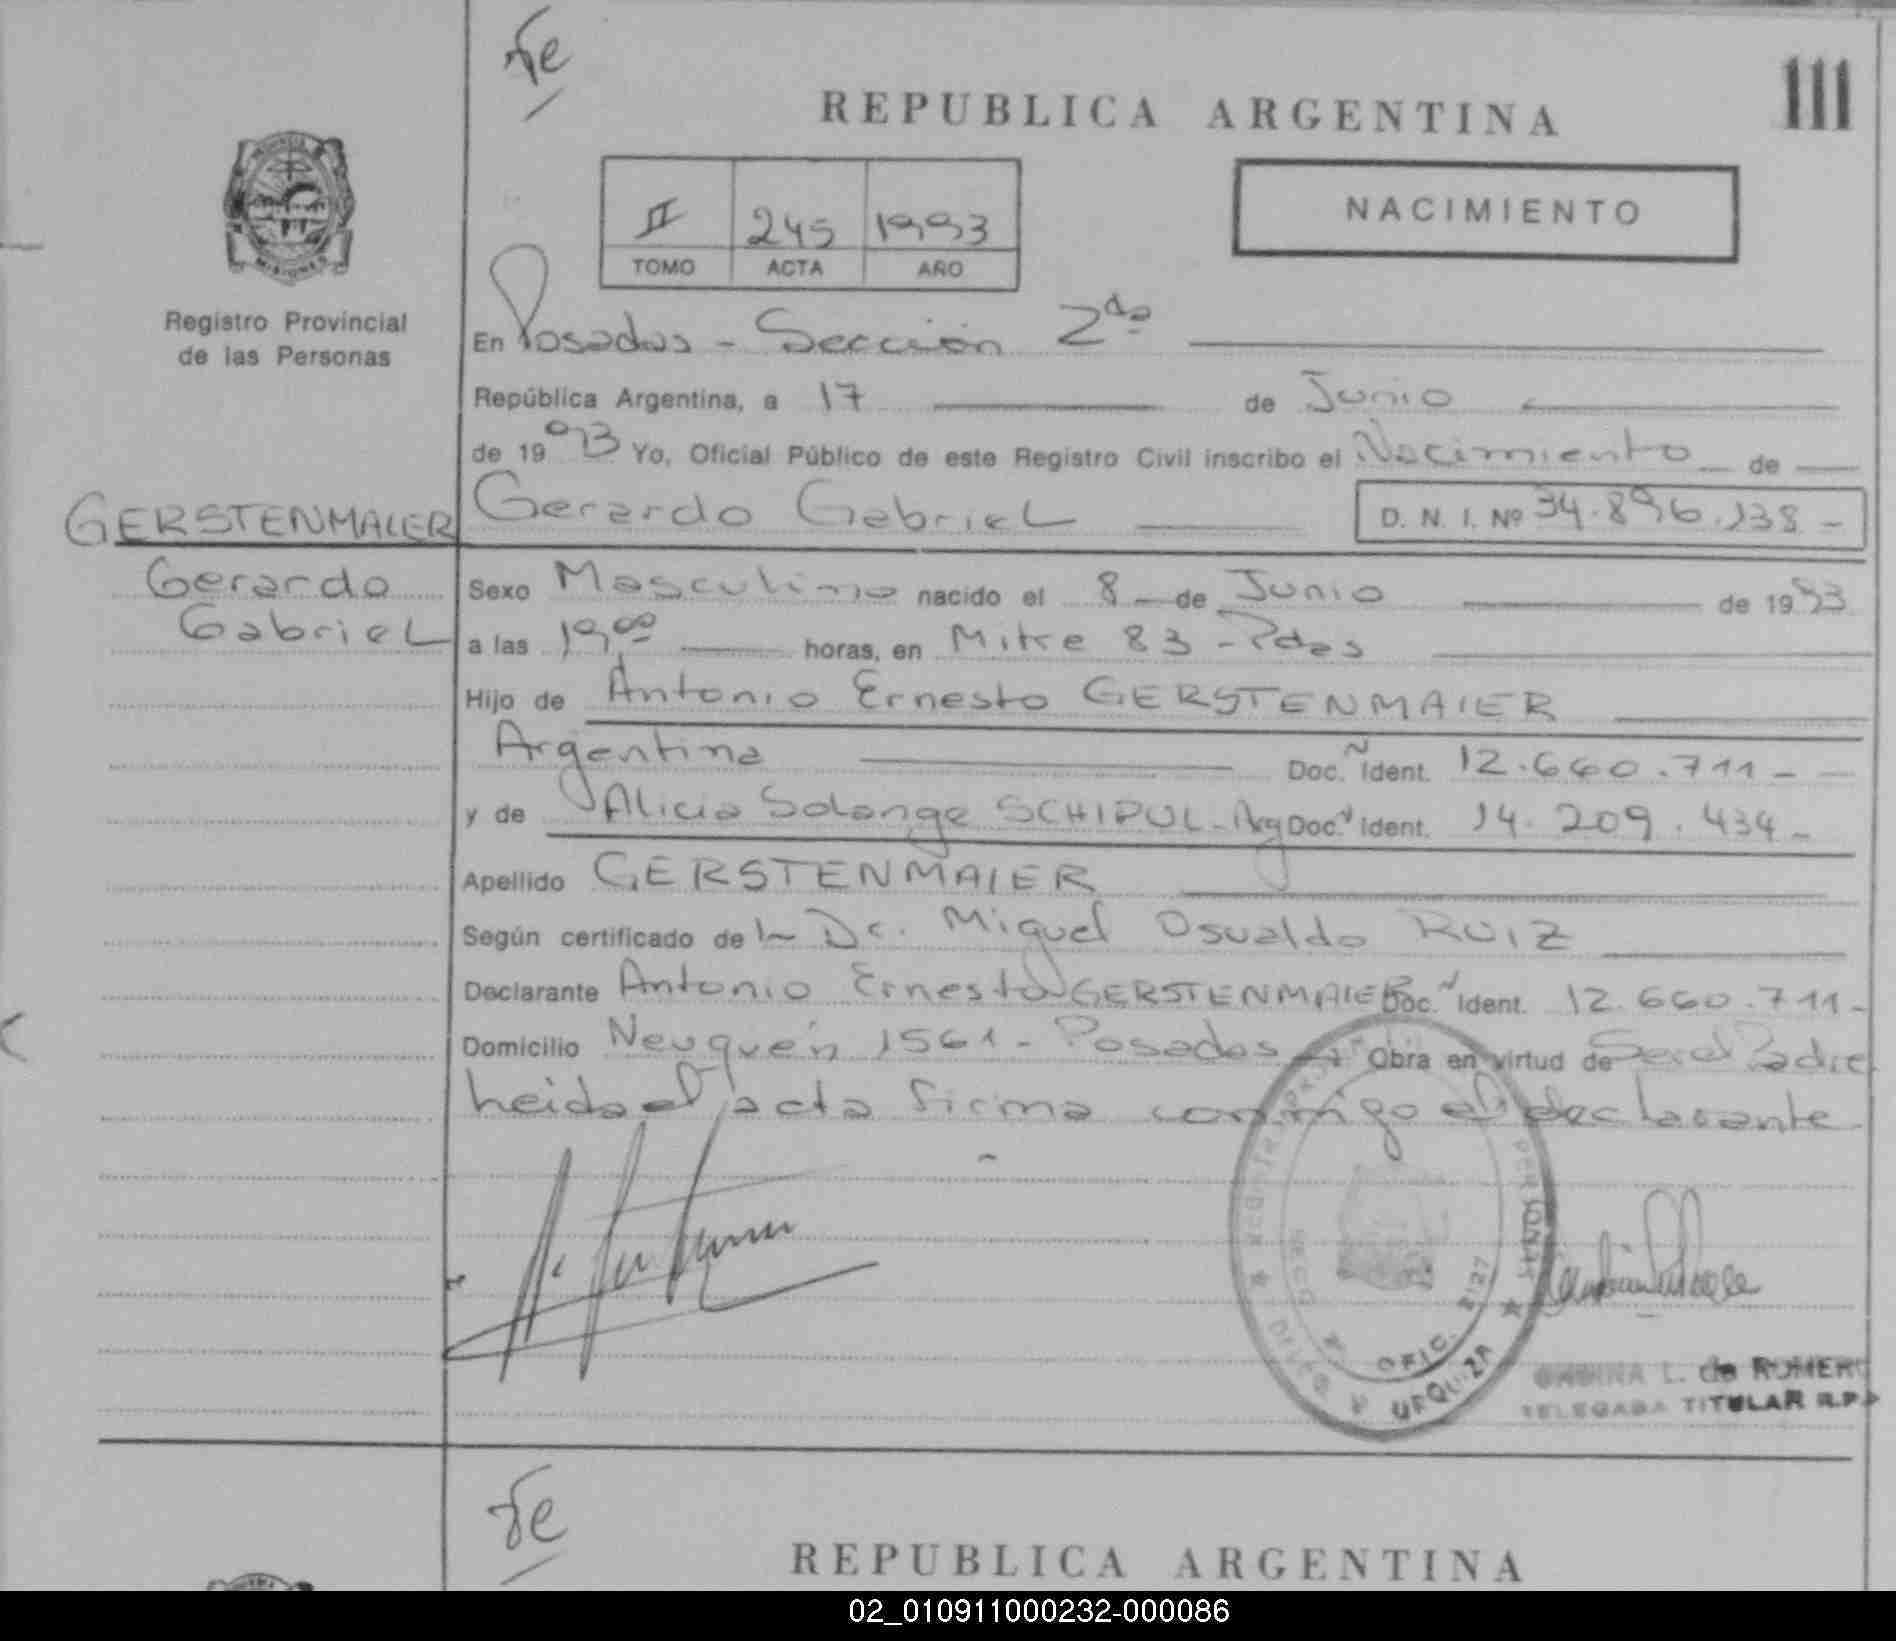 fe
REPUBLICA ARGENTINA
111
II 245 1993
TOMO ACTA AÑO
NACIMIENTO
MISIONES
Registro Provincial
de las Personas
En Posadas - Sección 2da
República Argentina, a 17 de Junio
de 1993 Yo, Oficial Público de este Registro Civil inscribo el Nacimiento de
GERSTENMAIER
Gerardo
Gabriel
Gerardo Gabriel D. N. I. Nº 34.896.138 -
Sexo Masculino nacido el 8 de Junio de 1993
a las 19,00 horas, en Mitre 83 - Pdas
Hijo de Antonio Ernesto GERSTENMAIER
Argentina Doc. Ident. 12.660.711 -
y de Alicia Solange SCHIPUL - Arg Doc. Ident. 14.209.434 -
Apellido GERSTENMAIER
Según certificado del Dr. Miguel Osvaldo RUIZ
Declarante Antonio Ernesto GERSTENMAIER Doc. Ident. 12.660.711 -
Domicilio Neuquén 1561 - Posadas Obra en virtud de Ser el Padre
leida el acta firma conmigo el declarante
PERSONAS
OFIC. 2127
URQUIZA
L. de ROMERO
DELEGADA TITULAR R.P.
fe
REPUBLICA ARGENTINA
02_010911000232-000086